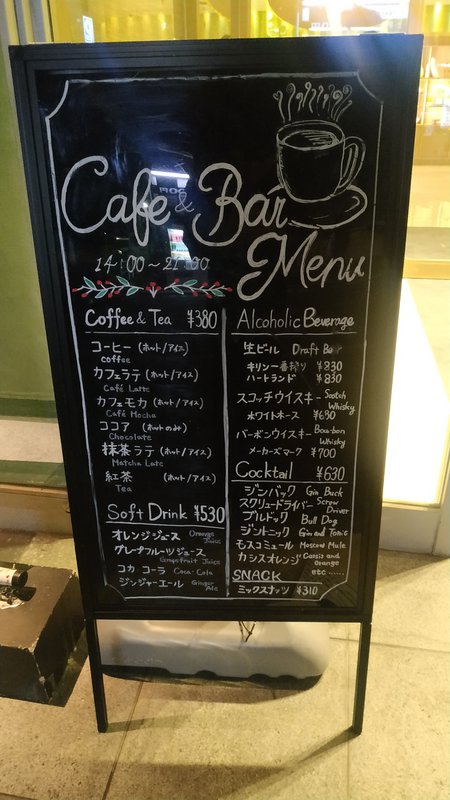 Cafe & Bar
Menu
14:00~21:00
Coffee & Tea ¥380
コーヒー (ホット/アイス)
coffee
カフェラテ (ホット/アイス)
Café Latte
カフェモカ (ホット/アイス)
Café Mocha
ココア (ホットのみ)
Chocolate
抹茶ラテ (ホット/アイス)
Matcha Late
紅茶 (ホット/アイス)
Tea
Soft Drink ¥530
オレンジジュース Orange Juice
グレープフルーツジュース
Grapefruit Juice
コカ コーラ Coca-Cola
ジンジャーエール Ginger Ale
Alcoholic Beverage
生ビール Draft Beer
キリン一番搾り ¥830
ハートランド ¥830
スコッチウイスキー Scotch Whisky
ホワイトホース ¥630
バーボンウイスキー Bourbon Whisky
メーカーズマーク ¥700
Cocktail ¥630
ジンバック Gin Buck
スクリュードライバー Screw Driver
ブルドッグ Bull Dog
ジントニック Gin and Tonic
モスコミュール Moscow Mule
カシスオレンジ Cassis and Orange
etc ......
SNACK
ミックスナッツ ¥310